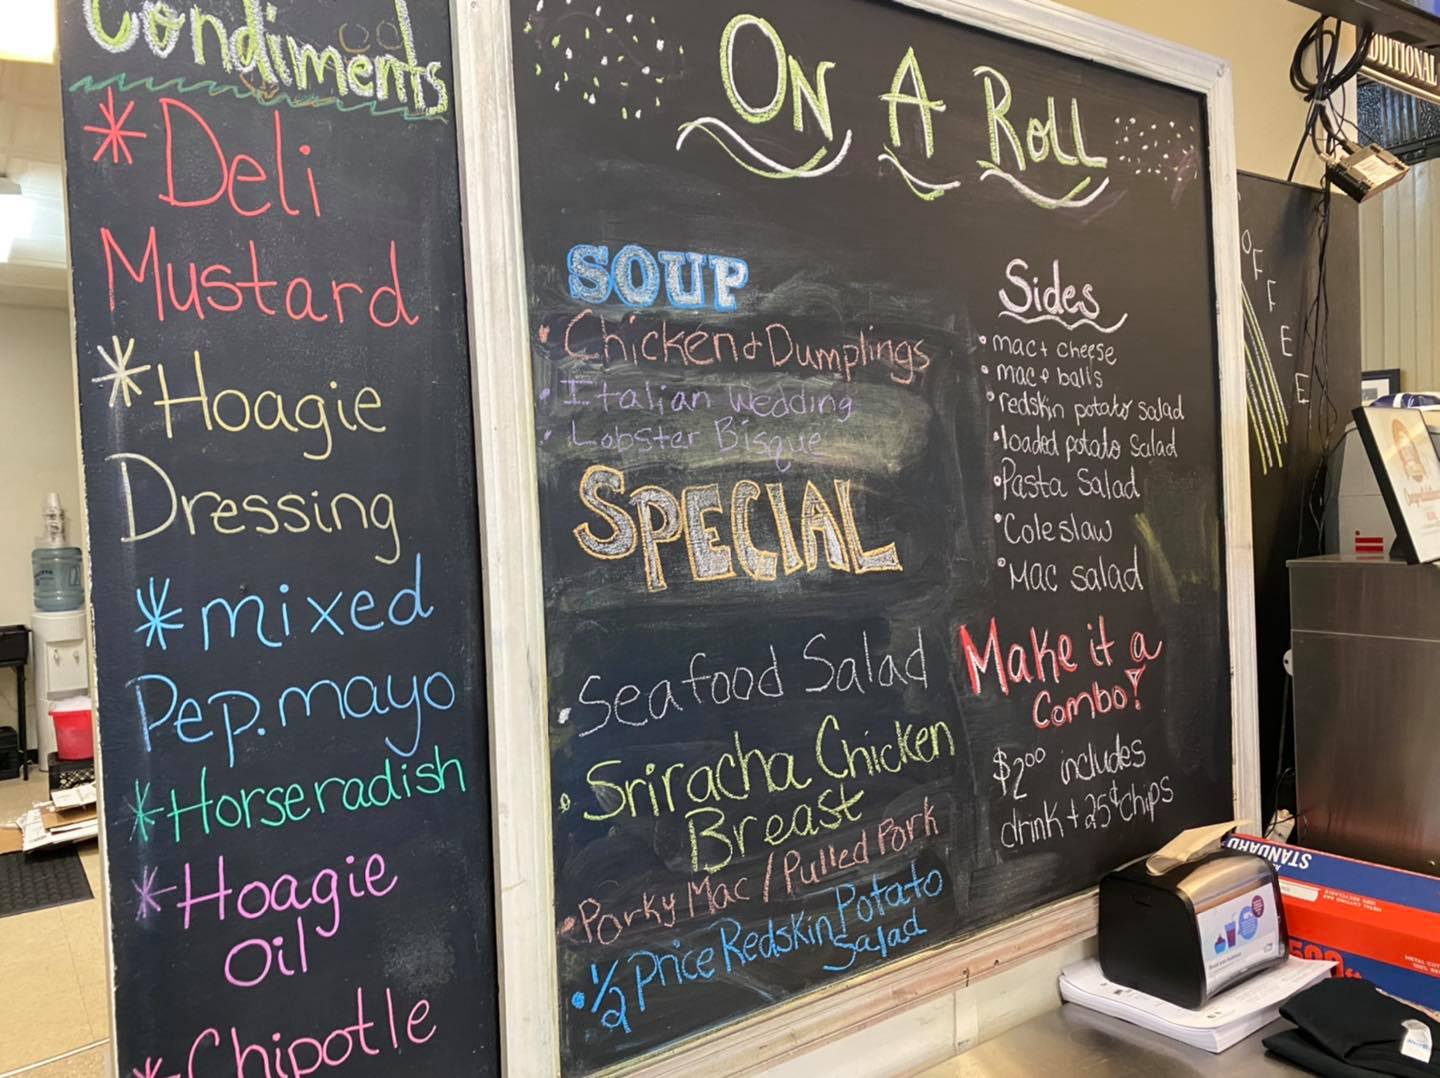 Condiments
*Deli
Mustard
*Hoagie
Dressing
*mixed
Pep. mayo
*Horseradish
*Hoagie
Oil
*Chipotle
ON A Roll
SOUP
• Chicken & Dumplings
• Italian Wedding
• Lobster Bisque
SPECIAL
• Seafood Salad
• Sriracha Chicken
Breast
• Porky Mac / Pulled Pork
• 1/2 Price Redskin Potato
Salad
Sides
• mac + cheese
• mac + balls
• redskin potato salad
• loaded potato salad
• Pasta Salad
• Coleslaw
• Mac salad
Make it a
Combo!
$2.00 includes
drink + 25¢ chips
OFFEE
DDITIONAL
STANDARD